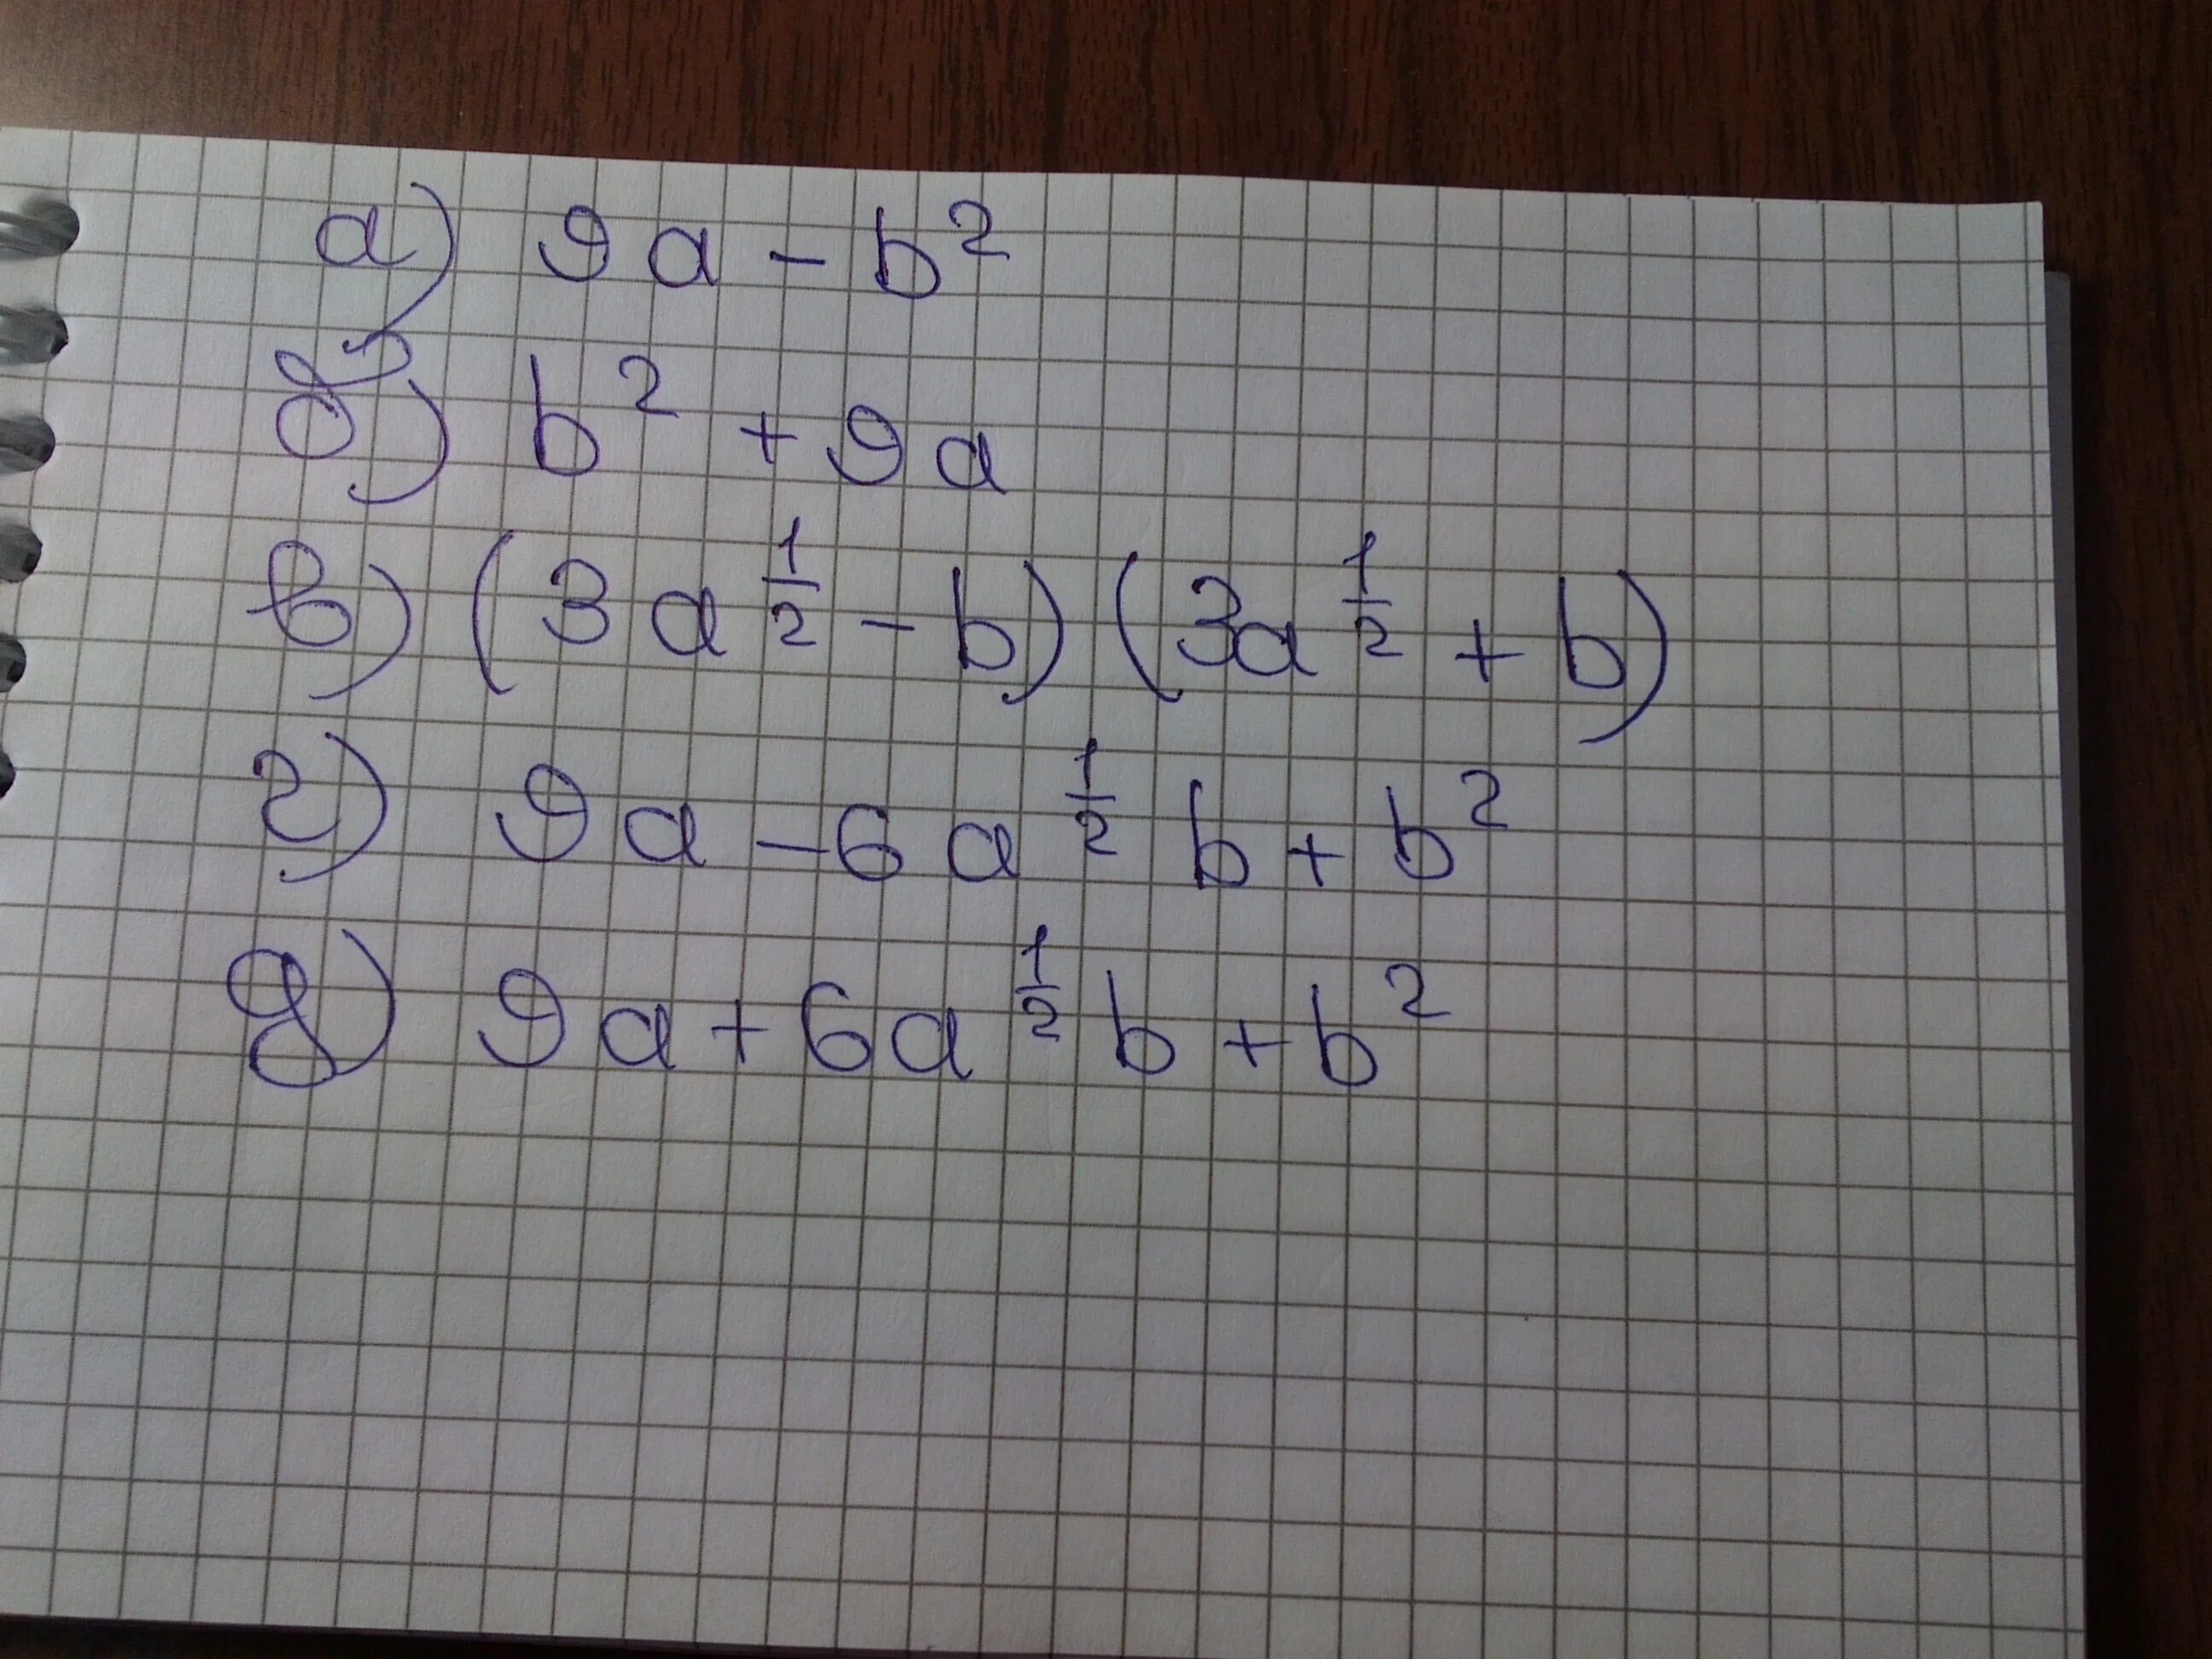 а) 9a - b²
б) b² + 9a
в) (3a^{1/2} - b)(3a^{1/2} + b)
г) 9a - 6a^{1/2}b + b²
д) 9a + 6a^{1/2}b + b²